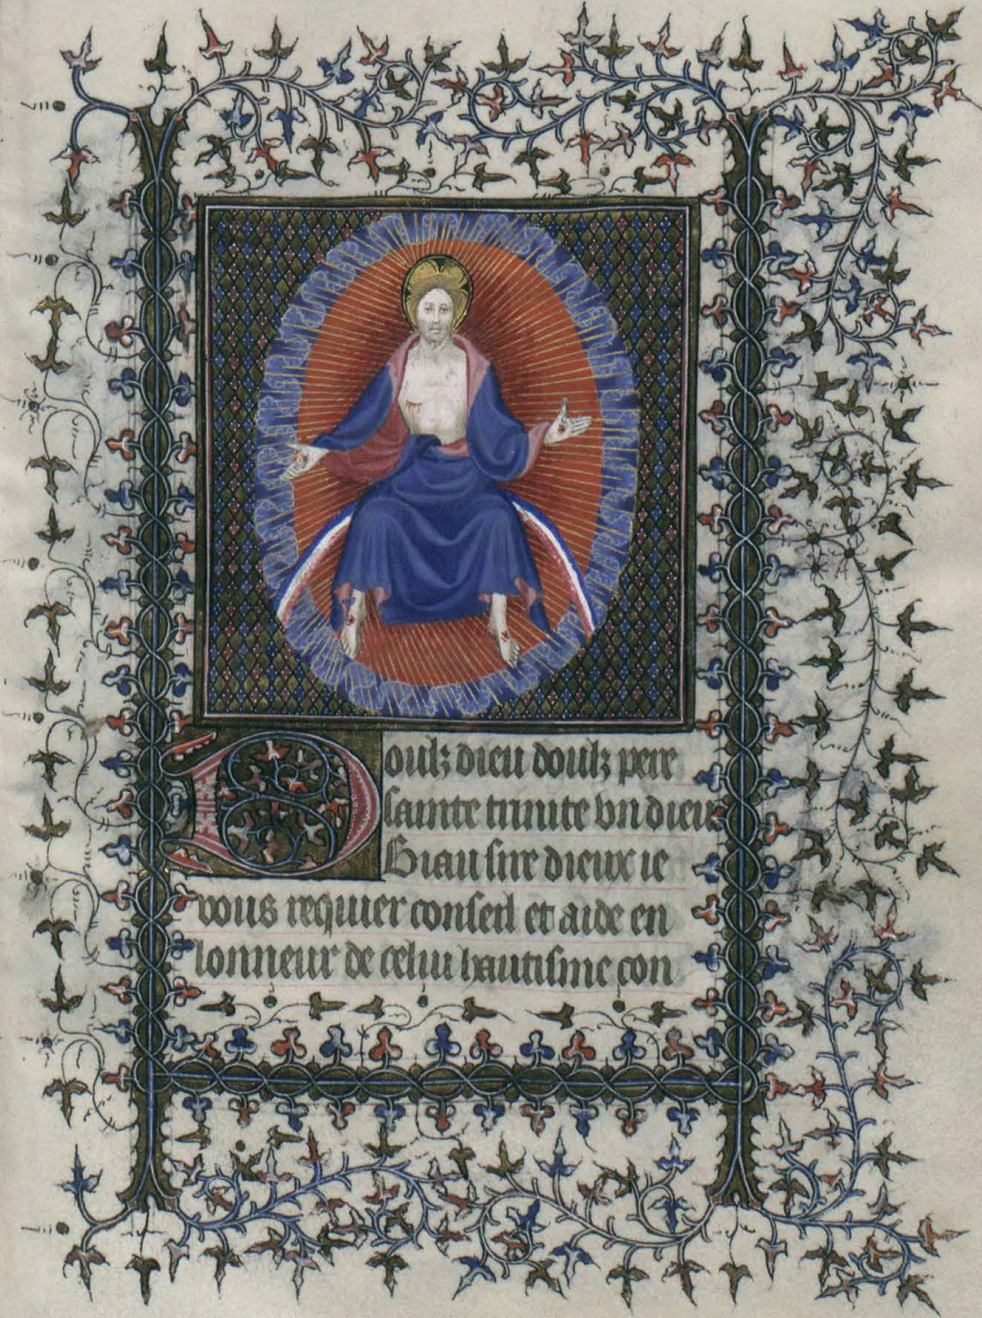 Doulz dieu doulz pere
sainte trinite vn dieu
Biau sire dieux ie
vous requier conseil et aide en
lonneur de celui hautisme con